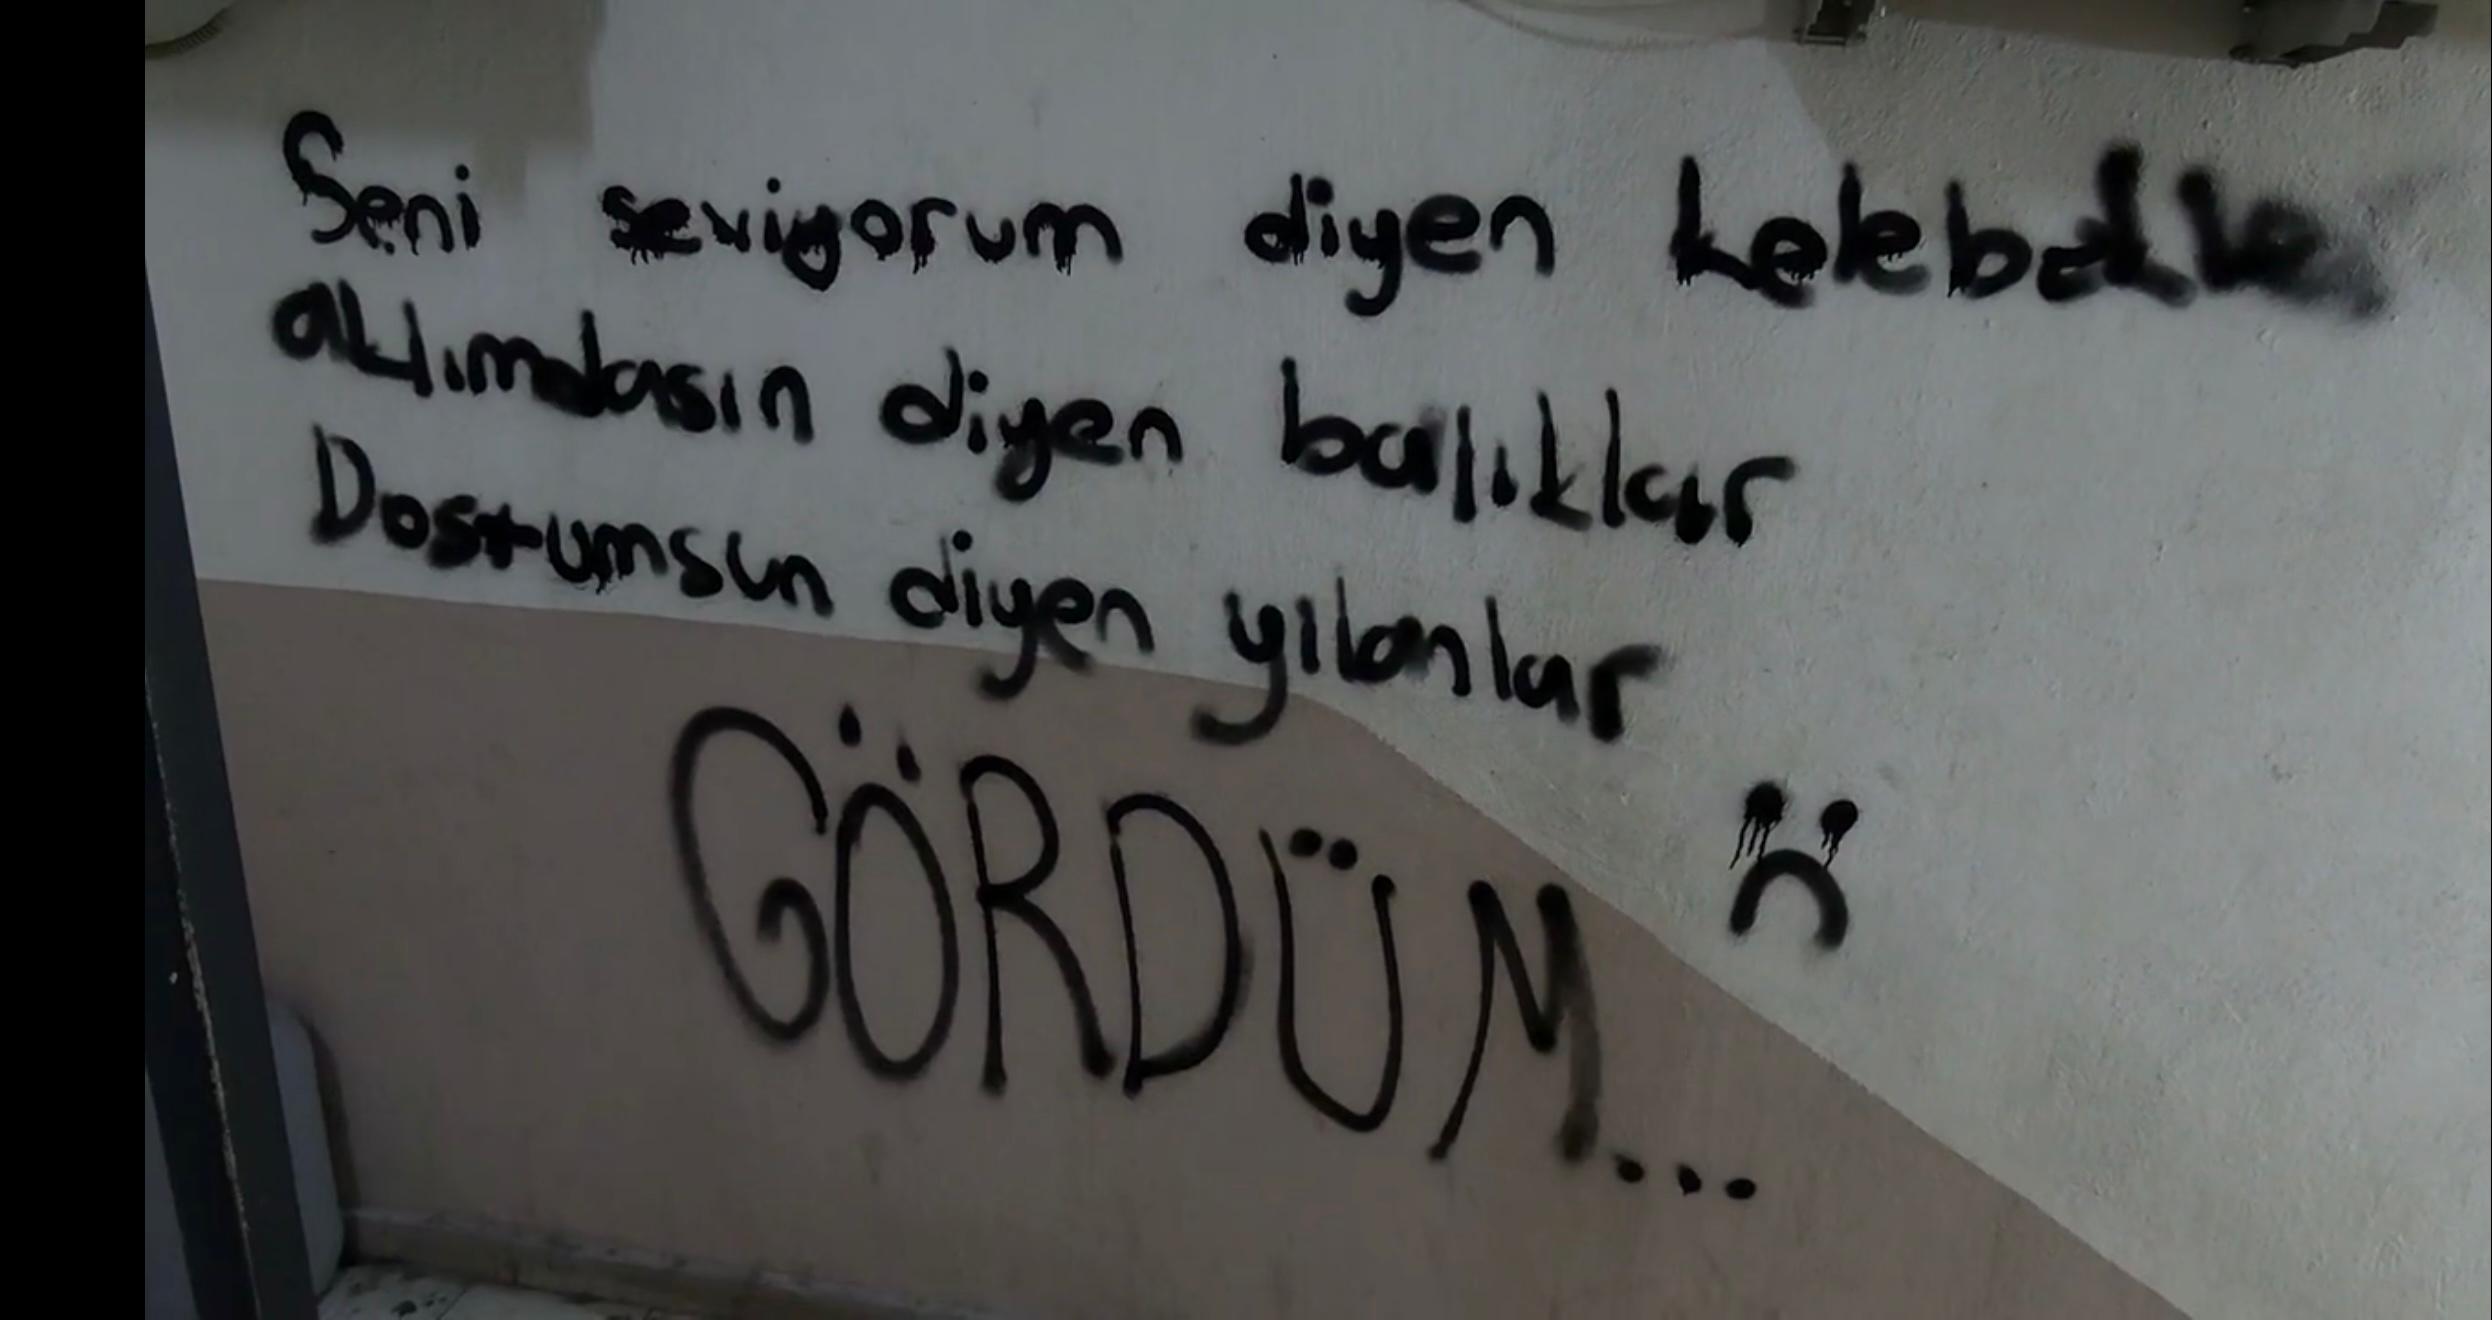 Seni seviyorum diyen
aklımdasın diyen balıklar
Dostumsun diyen yılanlar
GÖRDÜM...